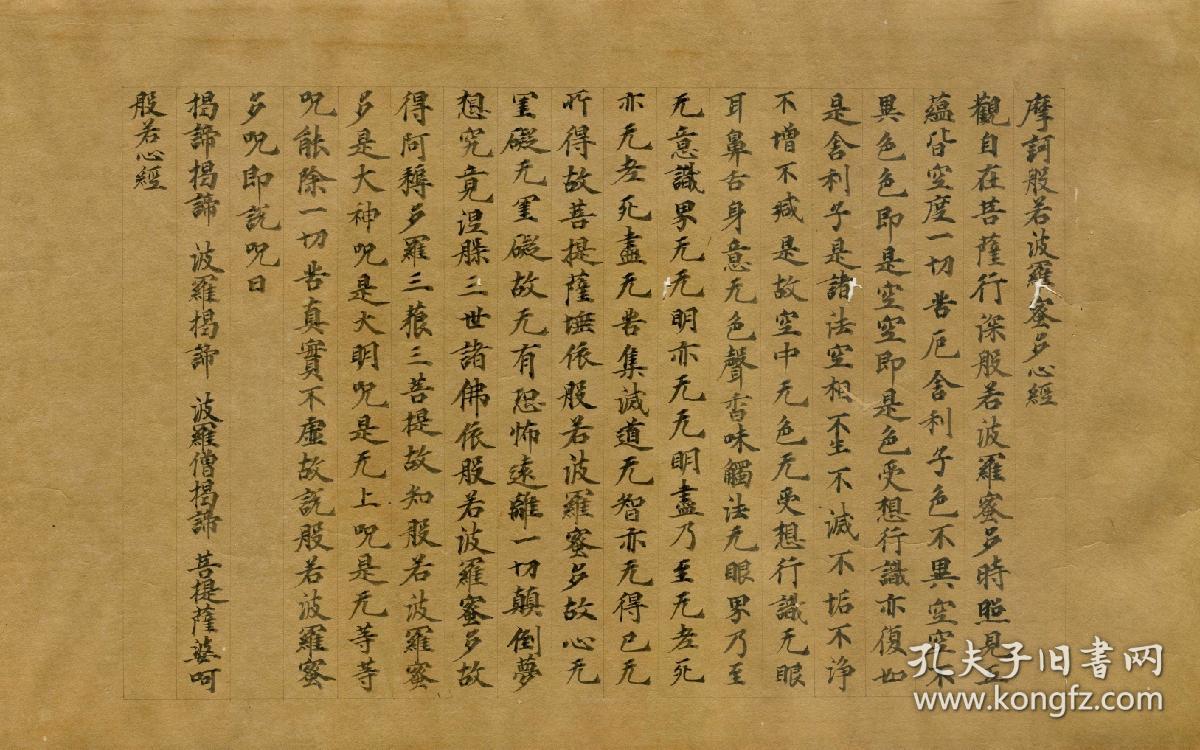 摩訶般若波羅蜜多心經
觀自在菩薩行深般若波羅蜜多時照見五
蘊皆空度一切苦厄舍利子色不異空空不
異色色即是空空即是色受想行識亦復如
是舍利子是諸法空相不生不滅不垢不浄
不增不減是故空中无色无受想行識无眼
耳鼻舌身意无色聲香味觸法无眼界乃至
无意識界无无明亦无无明盡乃至无老死
亦无老死盡无苦集滅道无智亦无得已无
所得故菩提薩埵依般若波羅蜜多故心无
罣礙无罣礙故无有恐怖遠離一切顛倒夢
想究竟涅槃三世諸佛依般若波羅蜜多故
得阿耨多羅三藐三菩提故知般若波羅蜜
多是大神呪是大明呪是无上呪是无等等
呪能除一切苦真實不虛故説般若波羅蜜
多呪即説呪曰
揭諦揭諦 波羅揭諦 波羅僧揭諦 菩提薩婆呵
般若心經
孔夫子旧书网
www.kongfz.com